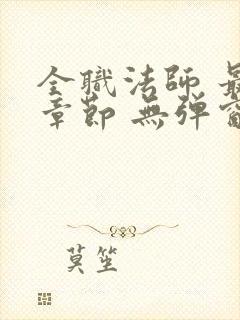 全職法師 最
章節 無弹窗
莫笙